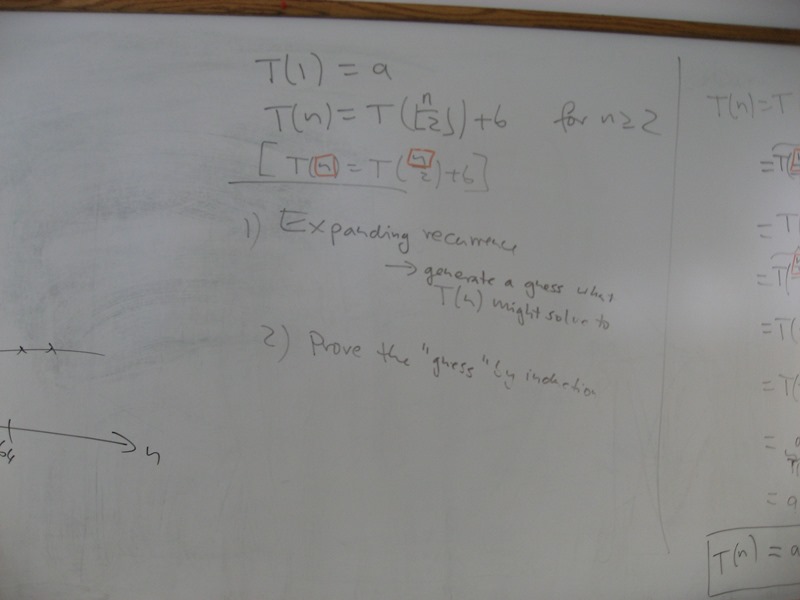 T(1) = a
T(n) = T(⌊n/2⌋) + b for n ≥ 2
[ T(n) = T(n/2) + b ]
1) Expanding recurrence
→ generate a guess what
T(n) might solve to
2) Prove the "guess" by induction
64
n
T(n) = T
= T(
= T
= T(
= T(
= T(
=
= a
T(n) = a